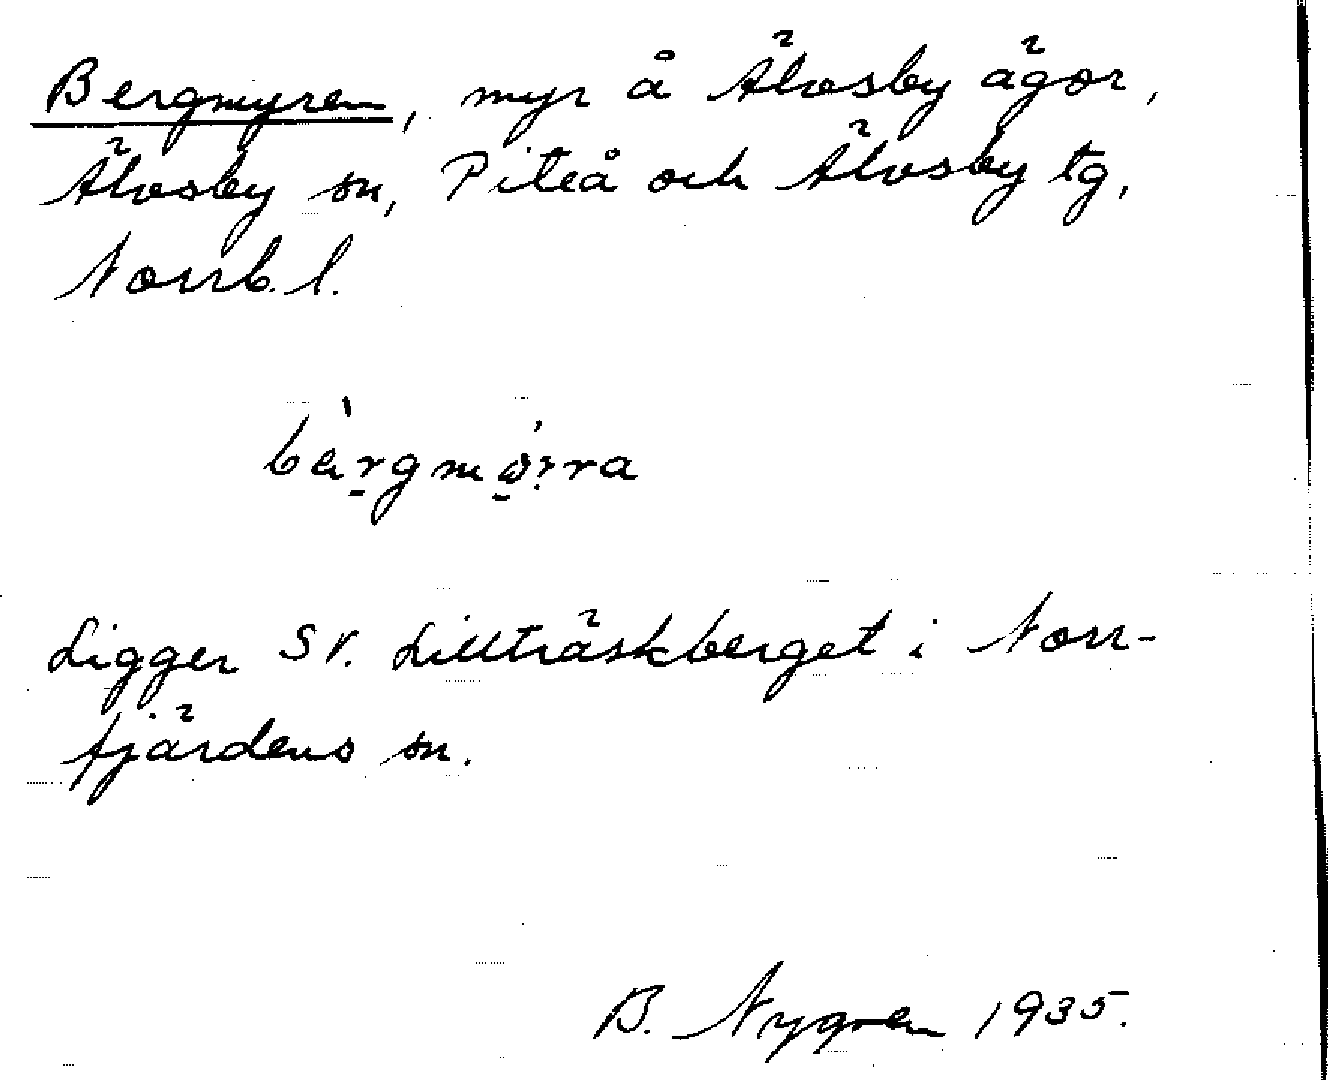 Bergmyren, myr å Älvsby ägor,
Älvsby sn, Piteå och Älvsby tg,
Norrb. l.
bèrgmø̀rra
Ligger SV. Lillträskberget i Norr-
fjärdens sn.
B. Nygren 1935.